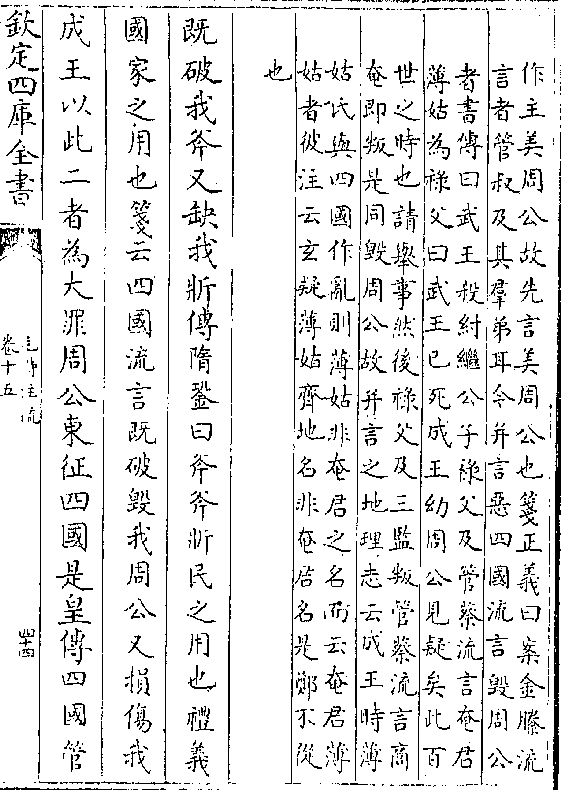 作主美周公故先言美周公也箋正義曰案金縢流
言者管叔及其羣弟耳今并言惡四國流言毀周公
者書傳曰武王殺紂繼公子祿父及管蔡流言奄君
薄姑為祿父曰武王已死成王幼周公見疑矣此百
世之時也請舉事然後祿父及三監叛管蔡流言商
奄即叛是同毀周公故并言之地理志云成王時薄
姑氏與四國作亂則薄姑非奄君之名而云奄君薄
姑者彼注云玄疑薄姑齊地名非奄君名是鄭不從
也
既破我斧又缺我斨傳隋銎曰斧斧斨民之用也禮義
國家之用也箋云四國流言既破毀我周公又損傷我
成王以此二者為大罪周公東征四國是皇傳四國管
欽定四庫全書
毛詩注疏
卷十五
四十四